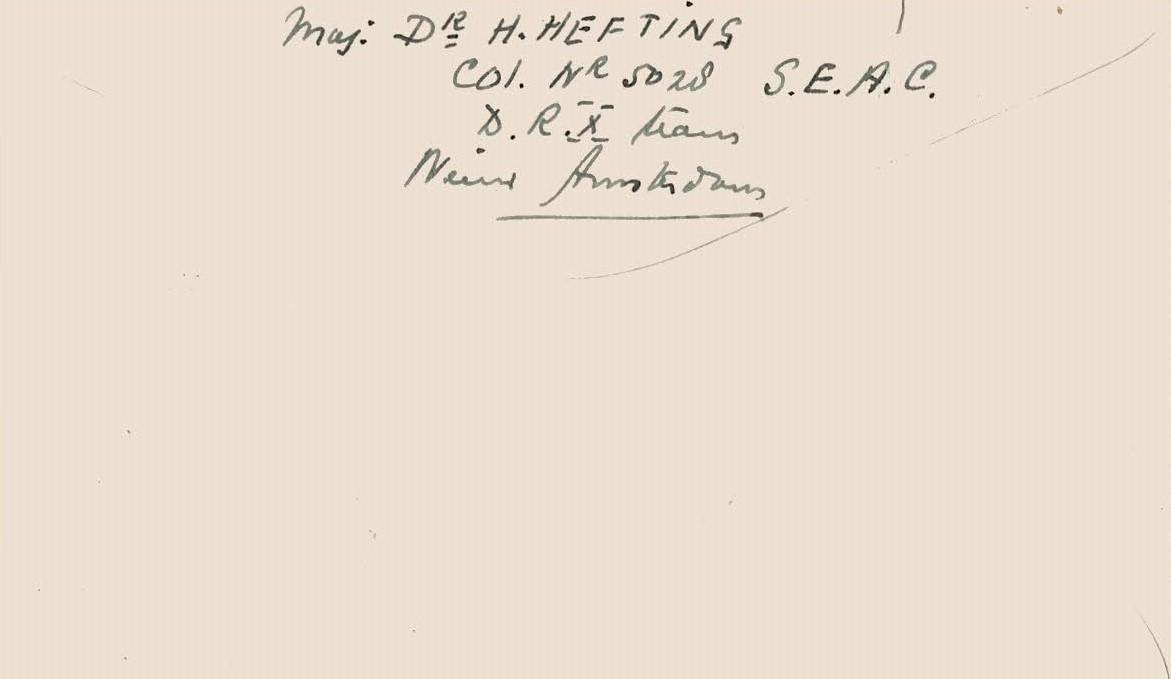 Maj: Dr H. HEFTING
Col. Nr 5028 S.E.A.C.
D.R.X trans
Nieuw Amsterdam